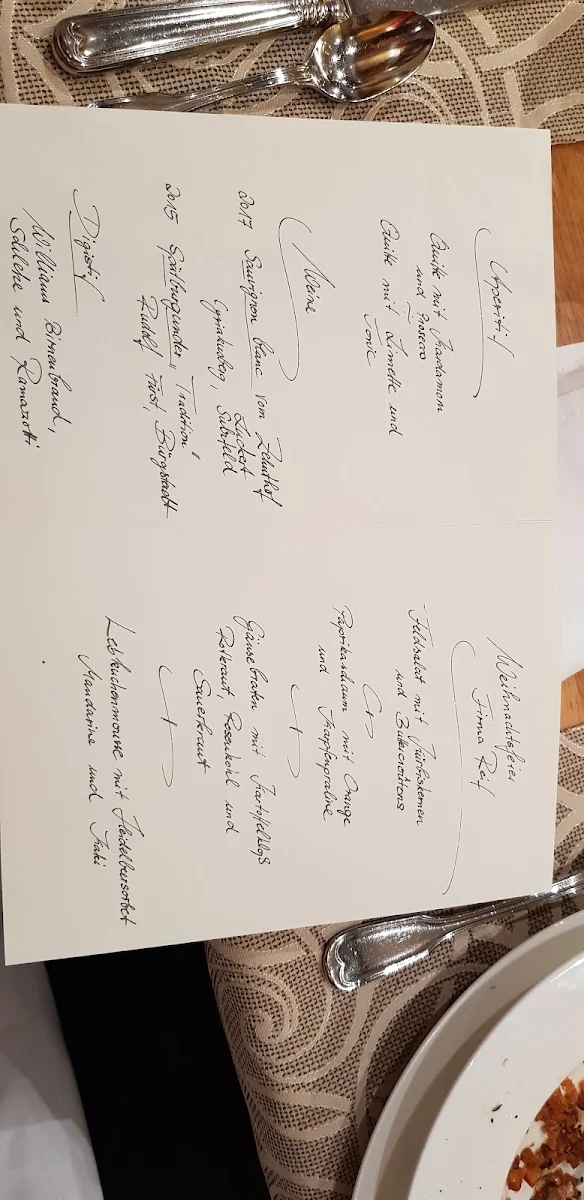 Aperitif
Quitte mit Kardamom
und Prosecco
Quitte mit Limette und
Tonic
Weine
2017 Sauvignon blanc vom Zehnthof
Luckert
Cyriakusberg, Sulzfeld
2015 Spätburgunder „Tradition"
Rudolf Fürst, Bürgstadt
Digistif
Williams Birnenbrand,
Schlehe und Ramazotti
Weihnachtsfeier
Firma Reif
Feldsalat mit Kürbiskernen
und Buttercroûtons
Paprikaschaum mit Orange
und Karpfenpraline
Gänsebraten mit Kartoffelklos
Rotkraut, Rosenkohl und
Sauerkraut
Lebkuchenmousse mit Heidelbeersorbet
Mandarine und Kaki